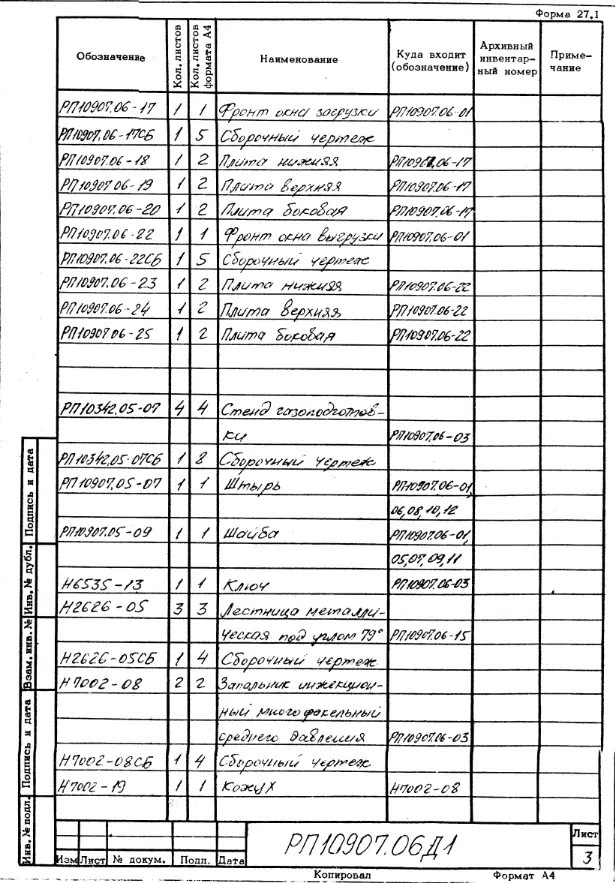 Форма 27.1
Обозначение Кол. листов Кол. листов формата А4 Наименование Куда входит (обозначение) Архивный инвентарный номер Примечание
РП10907.06-17 1 1 Фронт окна загрузки РП10907.06-01
РП10907.06-17СБ 1 5 Сборочный чертеж
РП10907.06-18 1 2 Плита нижняя РП10907.06-17
РП10907.06-19 1 2 Плита верхняя РП10907.06-17
РП10907.06-20 1 2 Плита боковая РП10907.06-17
РП10907.06-22 1 1 Фронт окна выгрузки РП10907.06-01
РП10907.06-22СБ 1 5 Сборочный чертеж
РП10907.06-23 1 2 Плита нижняя РП10907.06-22
РП10907.06-24 1 2 Плита верхняя РП10907.06-22
РП10907.06-25 1 2 Плита боковая РП10907.06-22
РП10342.05-07 4 4 Стенд газоподготов-
ки РП10907.06-03
РП10342.05-07СБ 1 8 Сборочный чертеж
РП10907.05-07 1 1 Штырь РП10907.06-01,
06,08,10,12
РП10907.05-09 1 1 Шайба РП10907.06-01,
05,07,09,11
Н6535-13 1 1 Ключ РП10907.06-03
Н2626-05 3 3 Лестница металли-
ческая под углом 79° РП10907.06-15
Н2626-05СБ 1 4 Сборочный чертеж
Н7002-08 2 2 Запальник инжекцион-
ный многофакельный
среднего давления РП10907.06-03
Н7002-08СБ 1 4 Сборочный чертеж
Н7002-19 1 1 Кожух Н7002-08
Инв. № подл. Подпись и дата Взам. инв. № Инв. № дубл. Подпись и дата
Изм Лист № докум. Подп. Дата
РП10907.06Д1
Лист
3
Копировал Формат А4